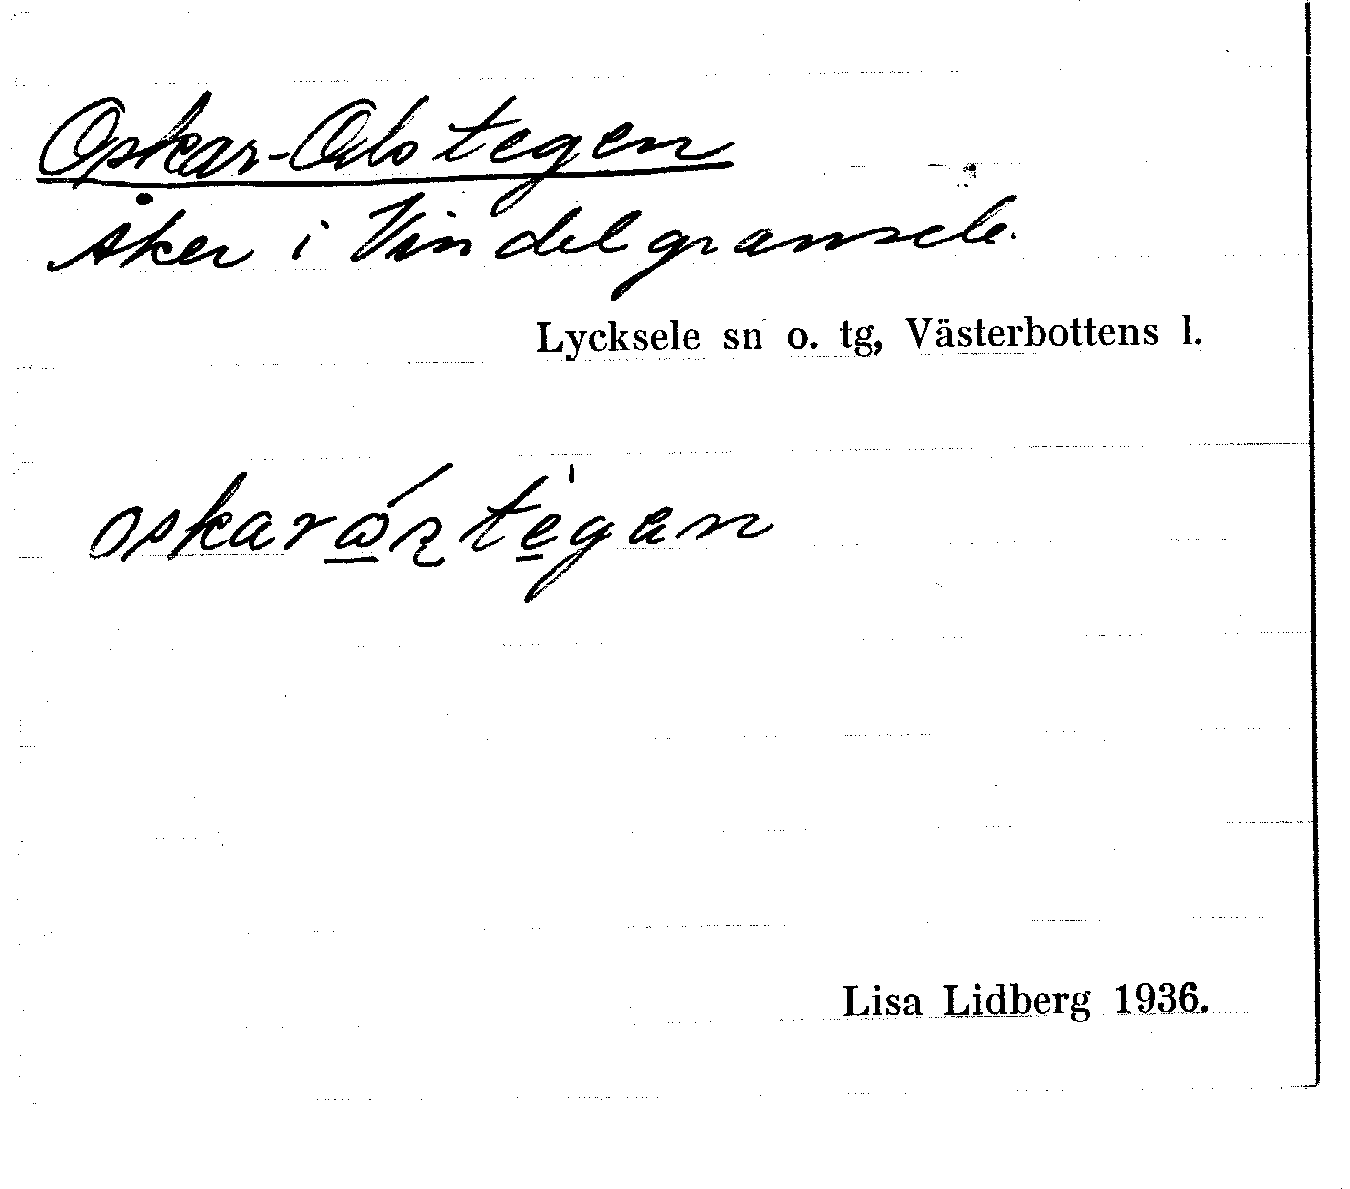 Oskar-Olstegen
åker i Vindelgransele.
Lycksele sn o. tg, Västerbottens l.
oskarώ̲ʂte̲̍gαn
Lisa Lidberg 1936.